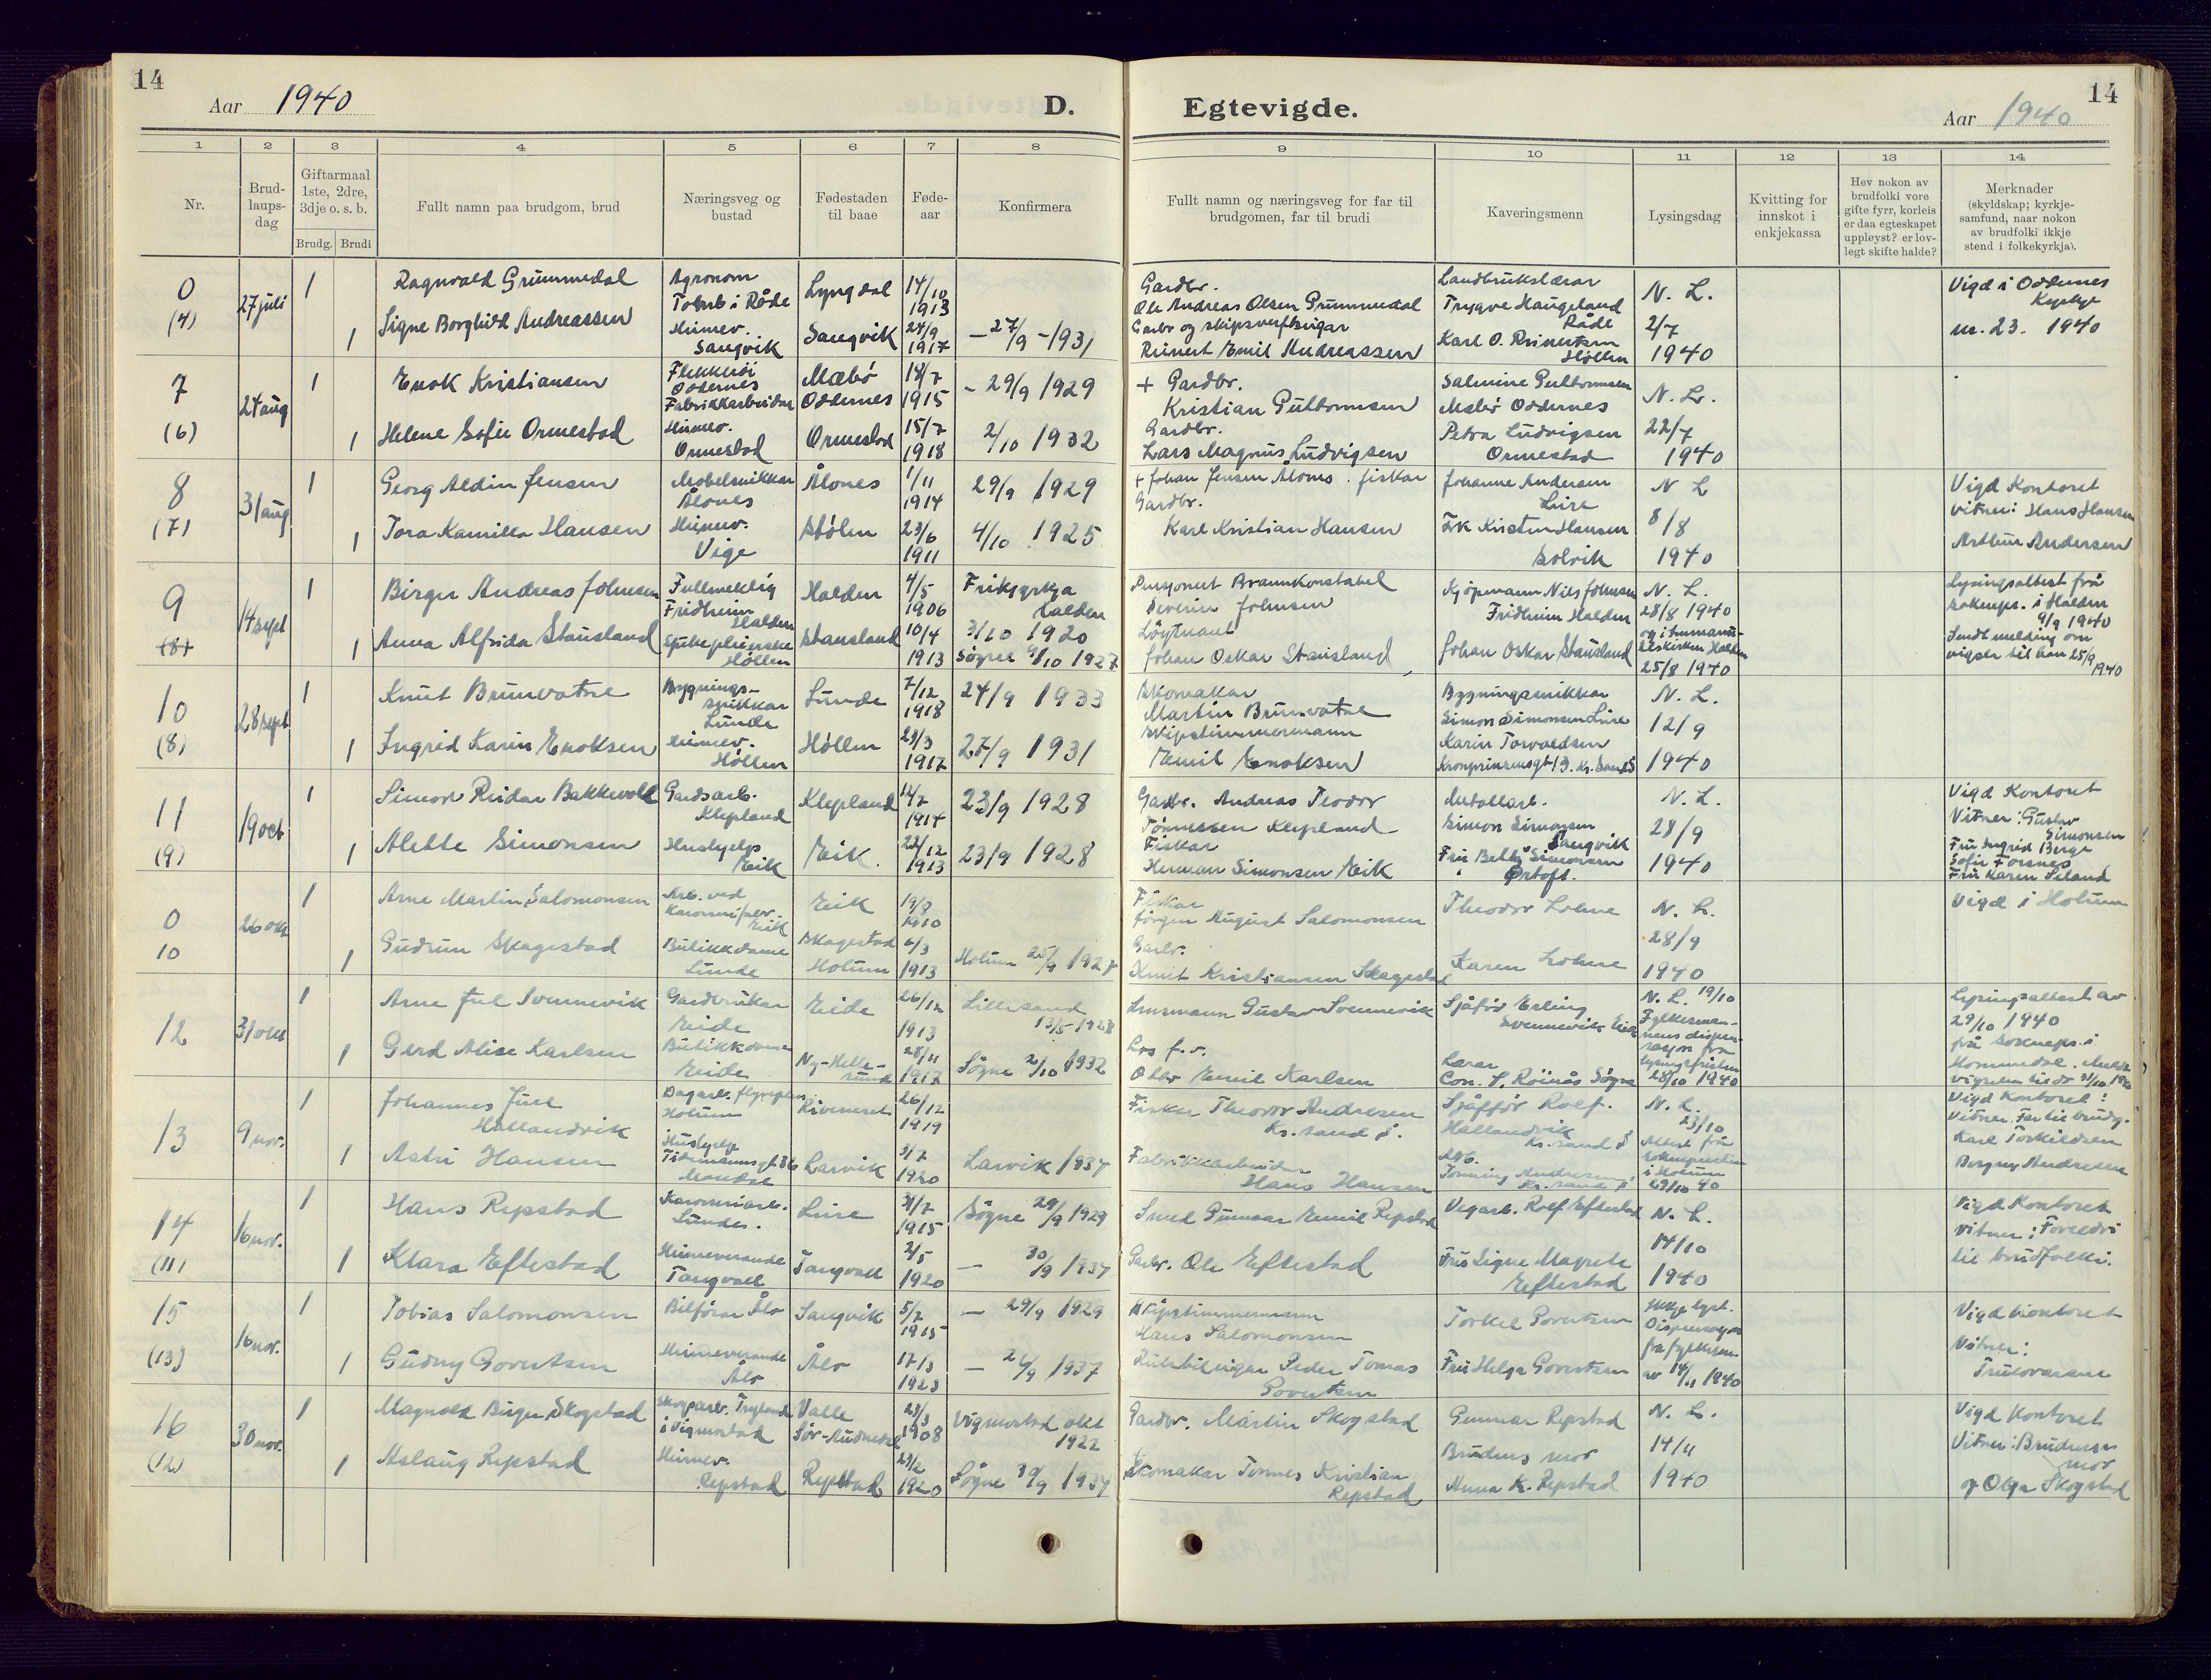 14
Aar 1940
D. Egtevigde.
Aar 1940
14
1 2 3 4 5 6 7 8 9 10 11 12 13 14
Nr.
Brud-
laups-
dag
Giftarmaal
1ste, 2dre,
3dje o. s. b.
Brudg. Brudi
Fullt namn paa brudgom, brud
Næringsveg og
bustad
Fødestaden
til baae
Føde-
aar
Konfirmera
Fullt namn og næringsveg for far til
brudgomen, far til brudi
Kaveringsmenn
Lysingsdag
Kvitting for
innskot i
enkjekassa
Hev nokon av
brudfolki vore
gifte fyrr, korleis
er daa egteskapet
uppløyst? er lov-
legt skifte halde?
Merknader
(skyldskap; kyrkje-
samfund, naar nokon
av brudfolki ikkje
stend i folkekyrkja).
0
(4)
27 juli
1
Ragnvald Grummedal
Agronom
i Råde
Lyngdal
14/10
1913
Gardbr.
Ole Andreas Olsen Grummedal
Landbrukslærar
Trygve Haugeland
Råde
N. L.
2/7
1940
Vigd i Oddernes
Kyrkje
nr. 23. 1940
1
Signe Borghild Andreassen
Heimev.
Sangvik
Sangvik
24/9
1917
— 27/9 - 1931
Garbr og skipsverftseigar
Reinert Emil Andreassen
Karl O. Reinertsen
Höllen
7
(6)
24 aug
1
Enok Kristiansen
Flekkeröi
Oddernes
Fabrikkarbeidar
Mæbö
Oddernes
18/7
1915
- 29/9 1929
+ Gardbr.
Kristian Guttormsen
Salmine Guttormsen
Mæbö Oddernes
N. L.
22/7
1940
1
Helene Sofie Ormestad
Heimev.
Ormestad
Ormestad
15/7
1918
2/10 1932
Gardbr.
Lars Magnus Ludvigsen
Petra Ludvigsen
Ormestad
8
(7)
31 aug
1
Georg Aldin Jensen
Møbelsnikkar
Ålones
Ålones
1/11
1914
29/9 1929
+ Johan Jensen Ålones. fiskar
Johanne Andersen
Lire
N L
8/8
1940
Vigd Kontoret
Vitner: Hans Hansen
Arthur Andersen
1
Tora Kamilla Hansen
Heimev.
Vige
Stölen
23/6
1911
4/10 1925
Gardbr.
Karl Kristian Hansen
Kristen Hansen
Solvik
9
(8)
14 sept
1
Birger Andreas Johnsen
Fullmektig
Fridheim
Halden
Halden
4/5
1906
Frikyrkja
Halden
3/10 1920
Pensjonert Brannkonstabel
Severin Johnsen
Kjöpmann Nils Johnsen
Fridheim Halden
N. L.
28/8 1940
og i Immanu-
elskirken Halden
25/8 1940
Lysingsattest frå
sokneps. i Halden
9/9 1940
Sendt melding om
vigsel til han 25/9
1940
1
Anna Alfrida Stausland
Sjukepleierske
Höllen
Stausland
10/4
1913
Søgne 9/10 1927
Löytnant
Johan Oskar Stausland
Johan Oskar Stausland
10
(8)
28 sept
1
Knut Brunvatne
Bygnings-
snikkar
Lunde
Lunde
7/12
1918
24/9 1933
Skomakar
Martin Brunvatne
Bygningssnikkar
Simon Simonsen Lire
N. L.
12/9
1940
1
Ingrid Karin Enoksen
Heimev.
Höllen
Höllen
29/3
1917
27/9 1931
Skipstimmermann
Emil Enoksen
Karin Torvaldsen
Kronprinsensgt 13. Kr.sand S
11
(9)
19 oct
1
Simon Reidar Bakkevoll
Gardsarb.
Klepland
Klepland
14/7
1914
23/9 1928
Gardbr. Andreas Teodor
Tönnessen Klepland
Metallarb.
Simon Simonsen
Sangvik
N. L.
28/9
1940
Vigd Kontoret
Vitner: Gustav
Simonsen
Fru Ingrid Berge
Sofie Torsnes
Fru Karen Leland
1
Alette Simonsen
Hushjelp
Eik
Eik.
22/12
1913
23/9 1928
Fiskar
Herman Simonsen Eik
Fru Betty Simonsen
Ørtoft.
0
10
26 okt
1
Arne Martin Salomonsen
Arb. ved
Eik
Eik
19/8
1910
Fiskar
Jörgen August Salomonsen
Theodor Lohne
N. L.
28/9
1940
Vigd i Holum
1
Gudrun Skagestad
Butikkdame
Lunde
Skagestad
Holum
6/3
1913
Holum 25/9 1927
Garbr.
Knut Kristiansen Skagestad
Karen Lohne
12
31 okt
1
Arne Juel Svennevik
Gardbrukar
Eide
Eide
26/12
1913
Lillesand
13/5 1928
Lensmann Gustav Svennevik
Sjåför Erling
Svennevik Eide
N. L. 19/10
Fylkesman-
nens dispen-
sasjon frå
lysingsfristen
28/10 1940
Lysingsattest av
29/10 1940
frå sokneps. i
Hommedal. Melde
vigselen til do 31/10 1940
1
Gerd Alise Karlsen
Butikkdame
Eide
Ny-Helle-
sund
28/11
1917
Søgne 2/10 1932
Los f. v.
Olav Emil Karlsen
Lærar
Con. S. Röinås Søgne
13
9 nov.
1
Johannes Juel
Hallandvik
Dagarb. flyveplass
Holum
26/12
1919
Fiskar Theodor Andresen
Kr.sand S.
Sjåfför Rolf.
Hallandvik
Kr.sand S
N. L.
23/10
Attest frå
soknepresten
i Holum
29/10 40
Vigd Kontoret:
Vitner. Far til brudg.
Karl Torkildsen
Borgny Andresen
1
Astri Hansen
Hushjelp
Tidemannsgt 36
Mandal
Larvik
3/7
1920
Larvik 1934
Fabrikkarbeidar
Hans Hansen
Arb.
Andresen,
Kr.sand S
14
(11)
16 nov.
1
Hans Repstad
Karosseriarb.
Lunde.
Lire
31/7
1915
Søgne 29/9 1929
Smed Gunnar Emil Repstad
Vegarb. Rolf Eftestad
N. L.
14/10
1940
Vigd Kontoret
Vitner: Foreldri
til brudfolki.
1
Klara Eftestad
Heimeverande
Tangvall
Tangvall
2/5
1920
— 30/9 1934
Garbr. Ole Eftestad
Fru Signe Magrete
Eftestad
15
(13)
16 nov.
1
Tobias Salomonsen
Bilförar Ålo
Sangvik
5/7
1915
— 29/9 1929
Skipstimmermann
Hans Salomonsen
Torkel Govertsen
Ikkje lyst.
Dispensasjon
frå fylkesm.
av 14/11 1940
Vigd kontoret
Vitner:
Trulovarane
1
Gudny Govertsen
Heimeverande
Ålo
Ålo
17/3
1923
— 26/9 1937
Rutebileigar Peder Tomas
Govertsen
Fru Helga Govertsen
16
(12)
30 nov.
1
Magnold Birger Skogstad
Skogsarb. Trygland
i Vigmostad
Valle
Sör-Audnedal
23/3
1908
Vigmostad okt
1922
Gardbr. Martin Skogstad
Gunnar Repstad
N. L.
14/11
1940
Vigd Kontoret
Vitner: Brudens
mor
og Olga Skogstad
1
Aslaug Repstad
Heimev.
Repstad
Repstad
23/2
1920
Søgne 30/9 1934
Skomakar Tønnes Kristian
Repstad
Brudens mor
Anna K. Repstad